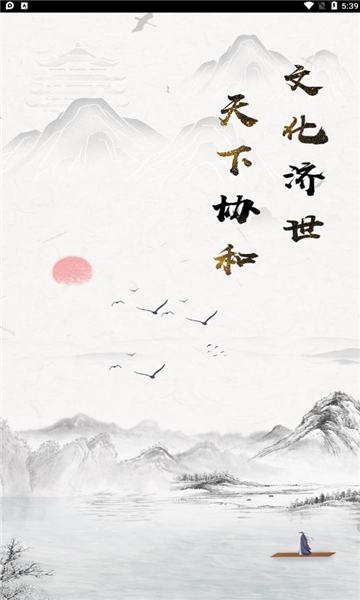 5:39
文化济世
天下协和